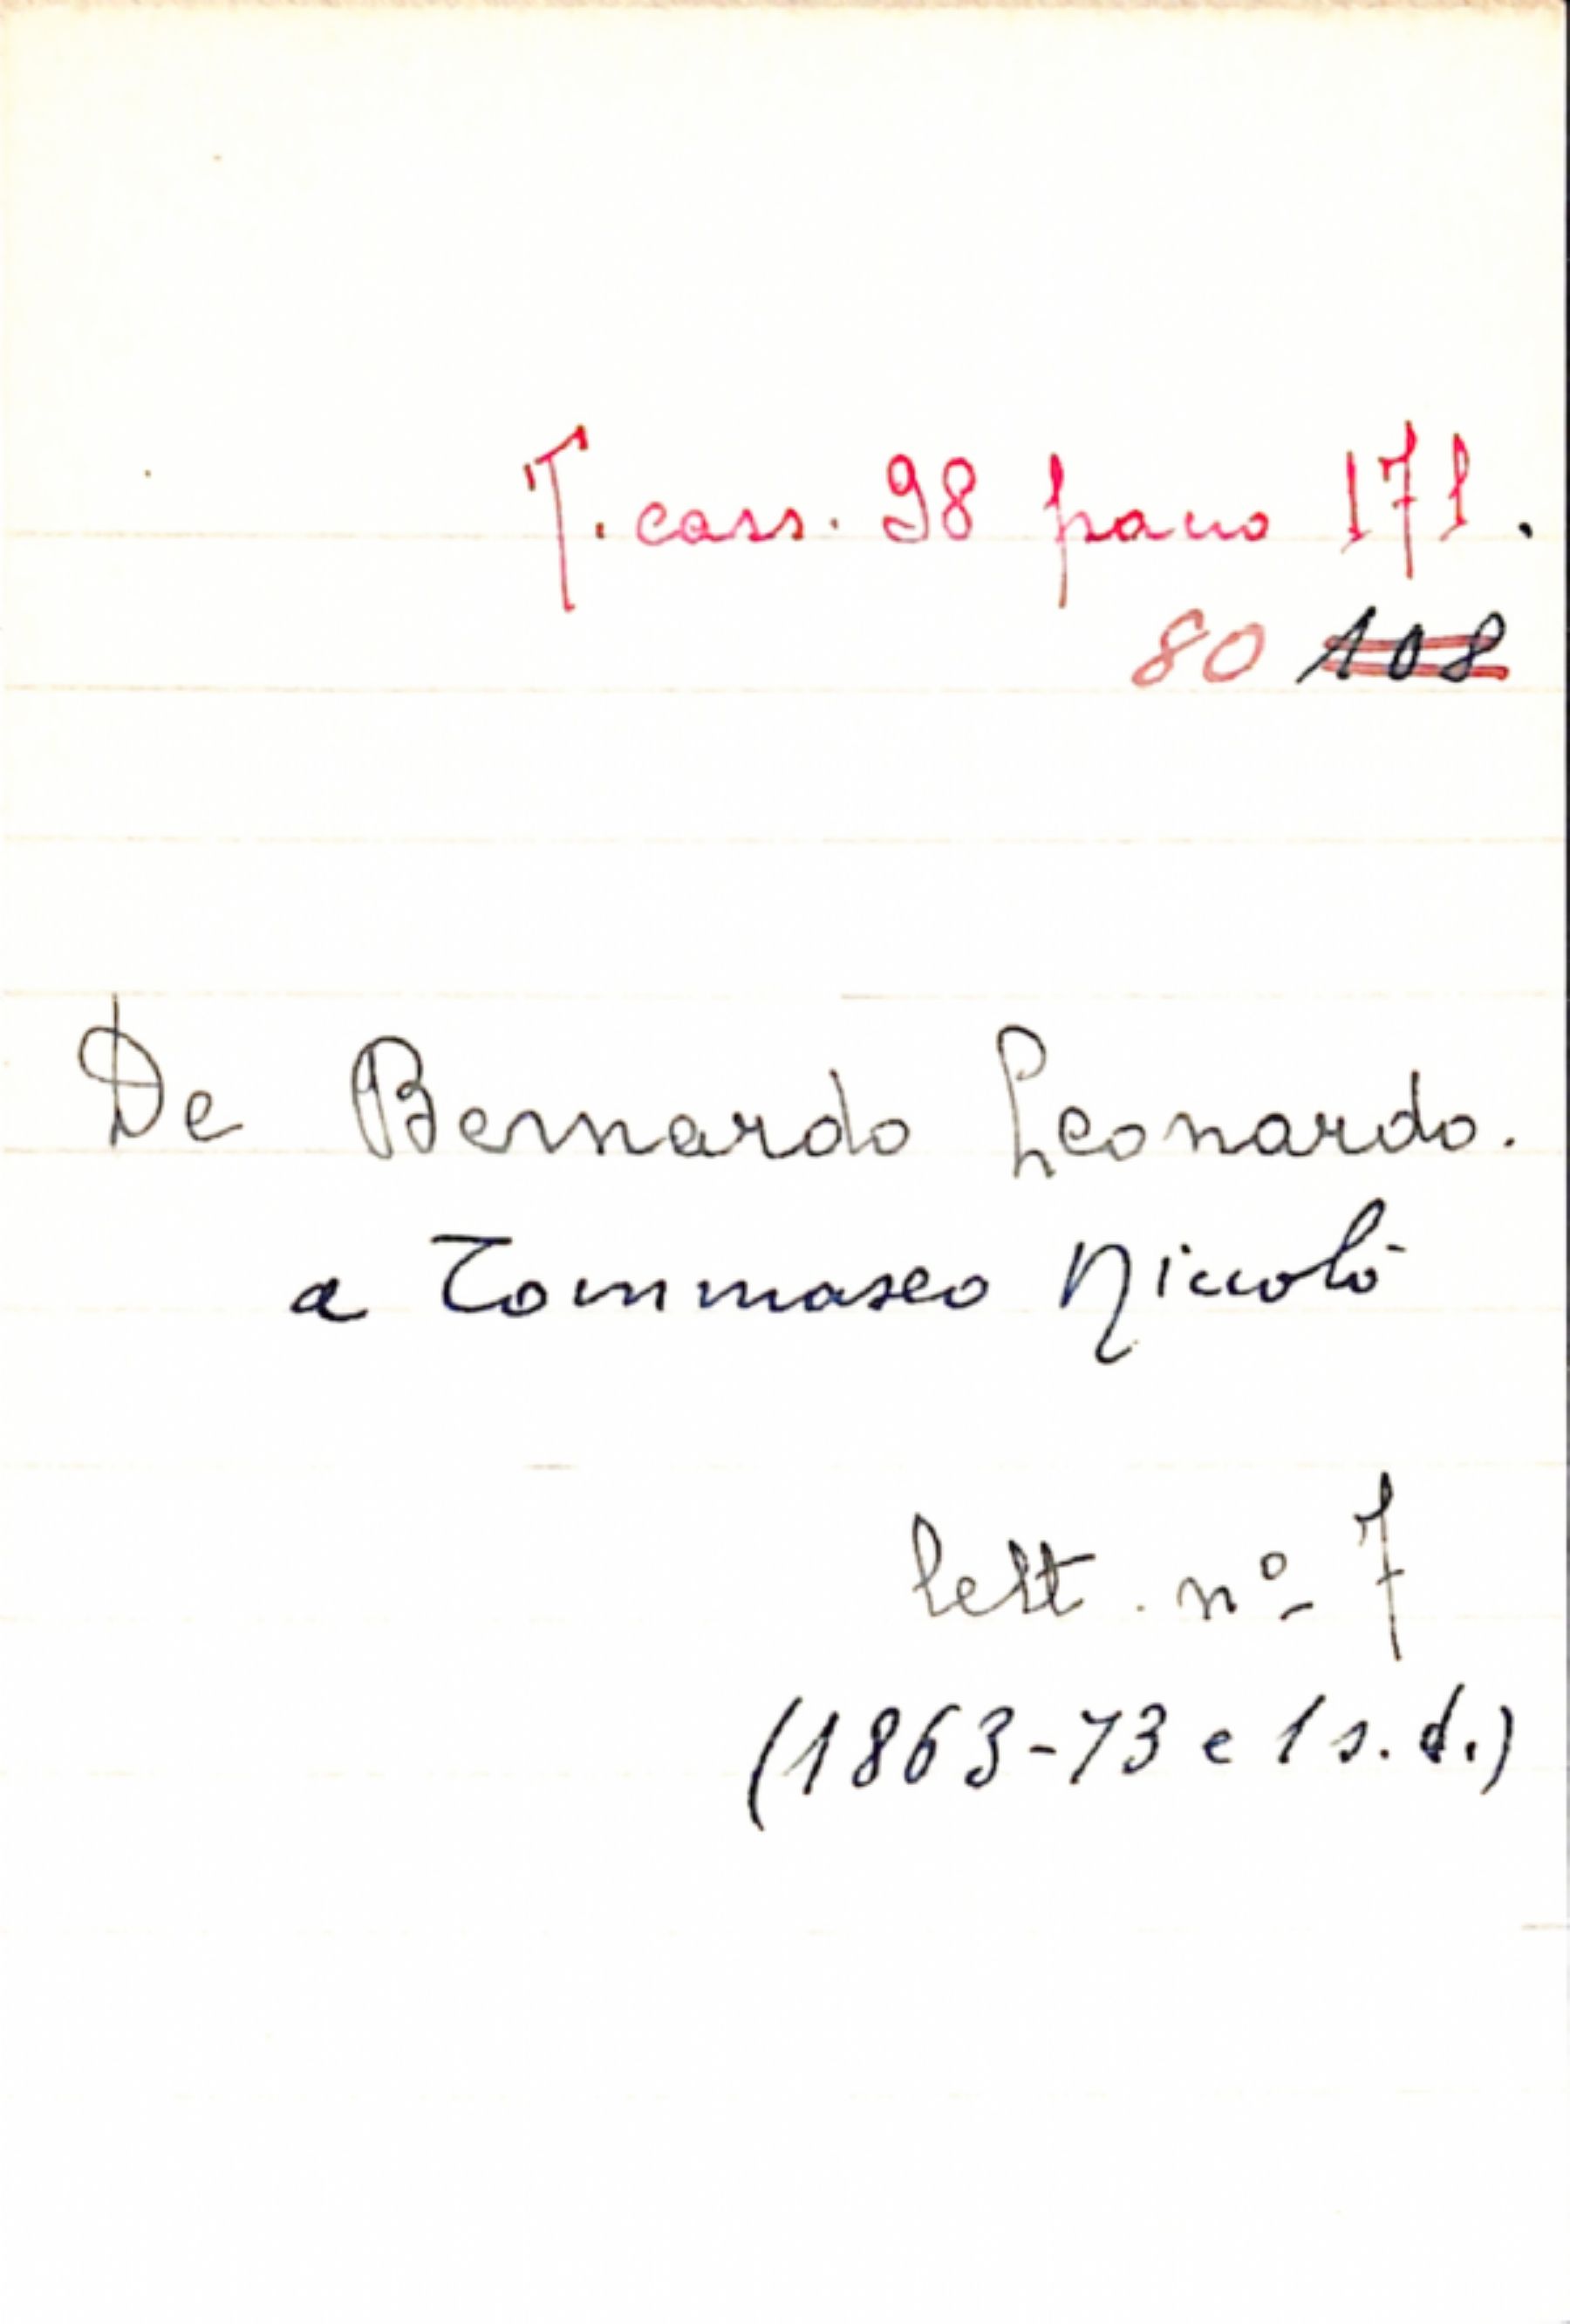 T. cass. 98 pacco 171.
80 108
De Bernardo Leonardo.
a Tommaseo Niccolò
lett. nº 7
(1863-73 e 1 s.d.)